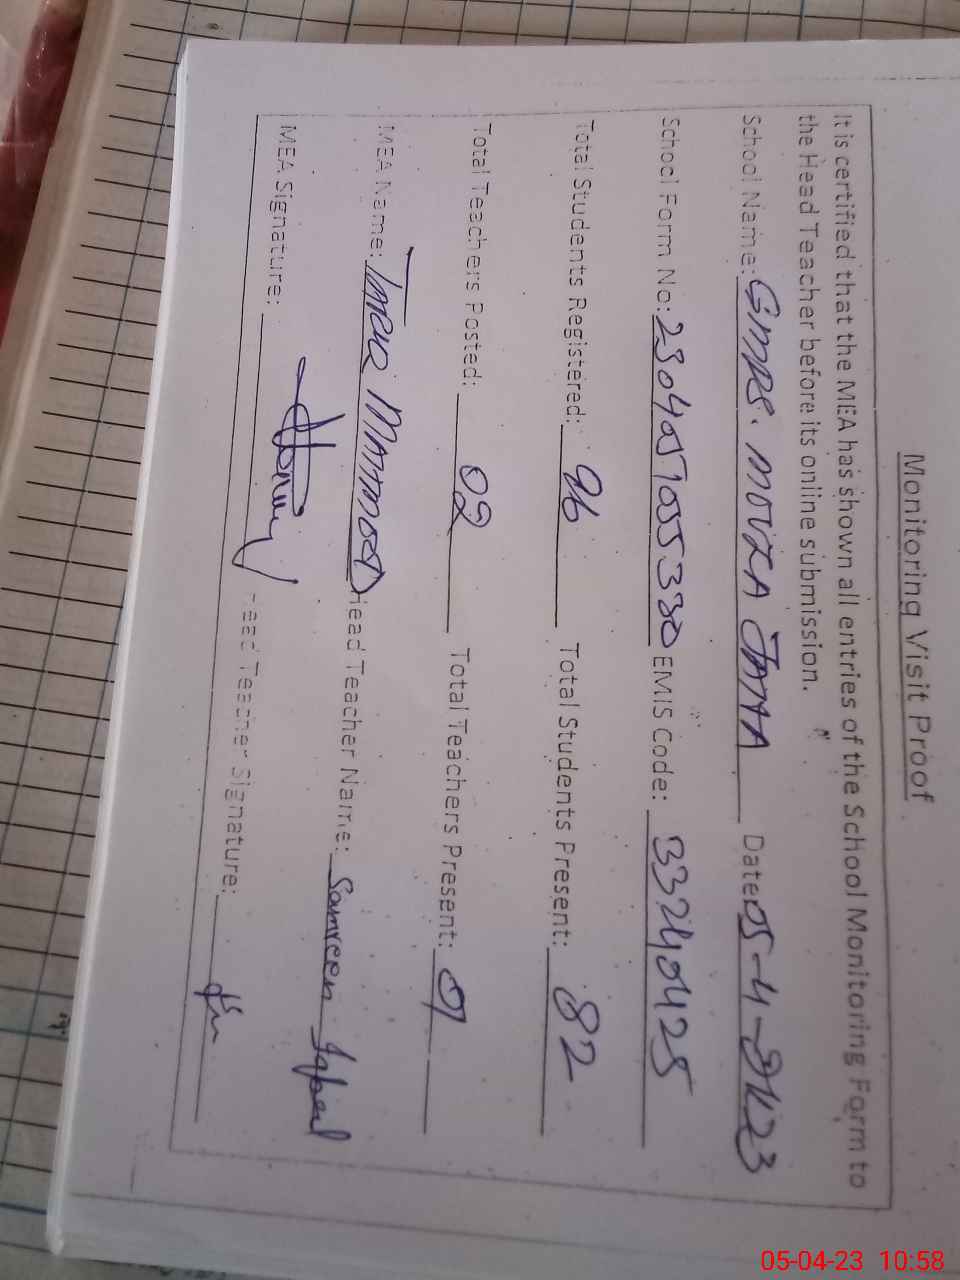 Monitoring Visit Proof
It is certified that the MEA has shown all entries of the School Monitoring Form to
the Head Teacher before its online submission.
School Name: GMPS. MOVZA JAMA Date: 05-4-2023
School Form No: 2304051055330 EMIS Code: 33240425
Total Students Registered: 96 Total Students Present: 82
Total Teachers Posted: 02 Total Teachers Present: 01
MEA Name: TARIQ MAHMOOD Head Teacher Name: Samreen
MEA Signature: Head Teacher Signature:
05-04-23 10:58